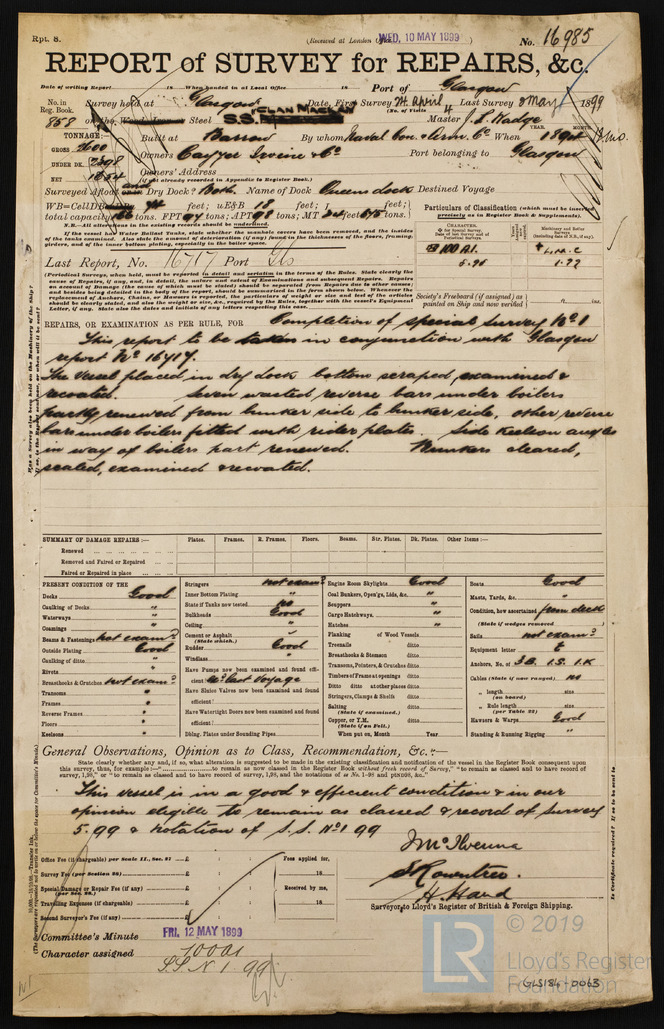 Rpt. 8.
(Received at London Office WED. 10 MAY 1899 )
No. 16985
REPORT of SURVEY for REPAIRS, &c.
Date of writing Report 18 When handed in at Local Office 18 Port of Glasgow
No. in Reg. Book. Survey held at Glasgow Date, First Survey 24 April Last Survey 8 May 1899
(No. of Visits 4
858 on the Steel S.S. CLAN Master J. S.
TONNAGE:— Built at Barrow By whom Naval Con. & Arm. Co. When 189 YEAR. MONTH.
GROSS 2600
UNDER DK. 2398 Owners Cayzer Irvine & Co Port belonging to Glasgow
NET 1654 Owners' Address
(If not already recorded in Appendix to Register Book.)
Surveyed Afloat and in Dry Dock? Both. Name of Dock Queens dock Destined Voyage
WB=CellDB feet; uE&B 18 feet; f feet;
total capacity tons. FPT 97 tons; APT 98 tons; MT 24 feet 575 tons.
N.B.—All alterations in the existing records should be underlined.
If the vessel has Water Ballast Tanks, state whether the manhole covers have been removed, and the insides of the tanks examined. Also state the amount of deterioration (if any) found in the thicknesses of the floors, framing, girders, and of the inner bottom plating, especially in the boiler space.
Particulars of Classification (which must be inserted precisely as in Register Book & Supplements).
CHARACTER.
Machinery and Boiler Surveys
100 A1
5.96
L.M.C
1.99
Society's Freeboard (if assigned) as painted on Ship and now verified ft. ins.
Last Report, No. 16717 Port Gls
(Periodical Surveys, when held, must be reported in detail and seriatim in the terms of the Rules. State clearly the cause of Repairs, if any, and, in detail, the nature and extent of Examinations and subsequent Repairs. Repairs on account of Damage (the cause of which must be stated) should be separated from Repairs due to other causes; and besides being detailed in the body of the report, should be summarized in the form shewn below. State also the dates and initials of any letters respecting this case.
REPAIRS, OR EXAMINATION AS PER RULE, FOR Completion of special survey No 1
This report to be taken in conjunction with Glasgow
report No 16717.
The vessel placed in dry dock bottom scraped, examined &
recoated. Seven wasted reverse bars under boilers
partly renewed from bunker side to bunker side, other reverse
bars under boilers fitted with rider plates. Side Keelson angles
in way of boilers part renewed. Bunkers cleared,
scaled, examined & recoated.
SUMMARY OF DAMAGE REPAIRS:— Plates. Frames. R. Frames. Floors. Beams. Str. Plates. Dk. Plates. Other Items:—
Renewed
Removed and Faired or Repaired
Faired or Repaired in place
PRESENT CONDITION OF THE
Decks Good
Caulking of Decks "
Waterways "
Coamings "
Beams & Fastenings not exam?
Outside Plating Good
Caulking of ditto "
Rivets "
Breasthooks & Crutches not exam?
Transoms "
Frames "
Reverse Frames "
Floors "
Keelsons "
Stringers not exam?
Inner Bottom Plating "
State if Tanks now tested no
Bulkheads Good
Ceiling "
Cement or Asphalt (State which.) "
Rudder Good
Windlass "
Have Pumps now been examined and found efficient last Voyage
Have Sluice Valves now been examined and found efficient?
Have Watertight Doors now been examined and found efficient?
Dblng. Plates under Sounding Pipes
Engine Room Skylights Good
Coal Bunkers, Open'gs, Lids, &c. "
Scuppers "
Cargo Hatchways "
Hatches "
Planking of Wood Vessels
Treenails ditto
Breasthooks & Stemson ditto
Transoms, Pointers, & Crutches ditto
Timbers of Frame at openings ditto
Ditto ditto at other places ditto
Stringers, Clamps & Shelfs ditto
Salting (State if examined.) ditto
Copper, or Y.M. (State if on Felt.) ditto
When put on, Month Year
Boats Good
Masts, Yards, &c. "
Condition, how ascertained from deck
(State if wedges removed)
Sails not exam?
Equipment letter t
Anchors, No. of 3B. 1S. 1K
Cables (State if now ranged) no
„ length (on board) size
„ Rule length (per Table 22) size
Hawsers & Warps Good
Standing & Running Rigging "
General Observations, Opinion as to Class, Recommendation, &c.:—
State clearly whether any, and if so, what alteration is suggested to be made in the existing classification and notification of the vessel in the Register Book consequent upon this survey, thus, for example:—"to remain as now classed in the Register Book without fresh record of Survey," "to remain as classed and to have record of survey, 1,98," or "to remain as classed and to have record of survey, 1,98, and the notations of ss No. 1-98 and ptND98, &c."
This vessel is in a good & efficient condition & in our
opinion eligible to remain as classed & record of survey
5.99 & notation of S.S. No 1 99
Office Fee (if chargeable) per Scale II., Sec. 21 £
Survey Fee (per Section 28) £
Special Damage or Repair Fee (if any) (per Sec. 28.) £
Travelling Expenses (if chargeable) £
Second Surveyor's Fee (if any) £
Fees applied for, 18
Received by me, 18
J McIlvenna
S Rowntree.
H. Hand
Surveyor to Lloyd's Register of British & Foreign Shipping.
Committee's Minute FRI. 12 MAY 1899
Character assigned 100A1
S.S. No 1 99
© 2019
LR
Lloyd's Register
Foundation
GLS184-0063